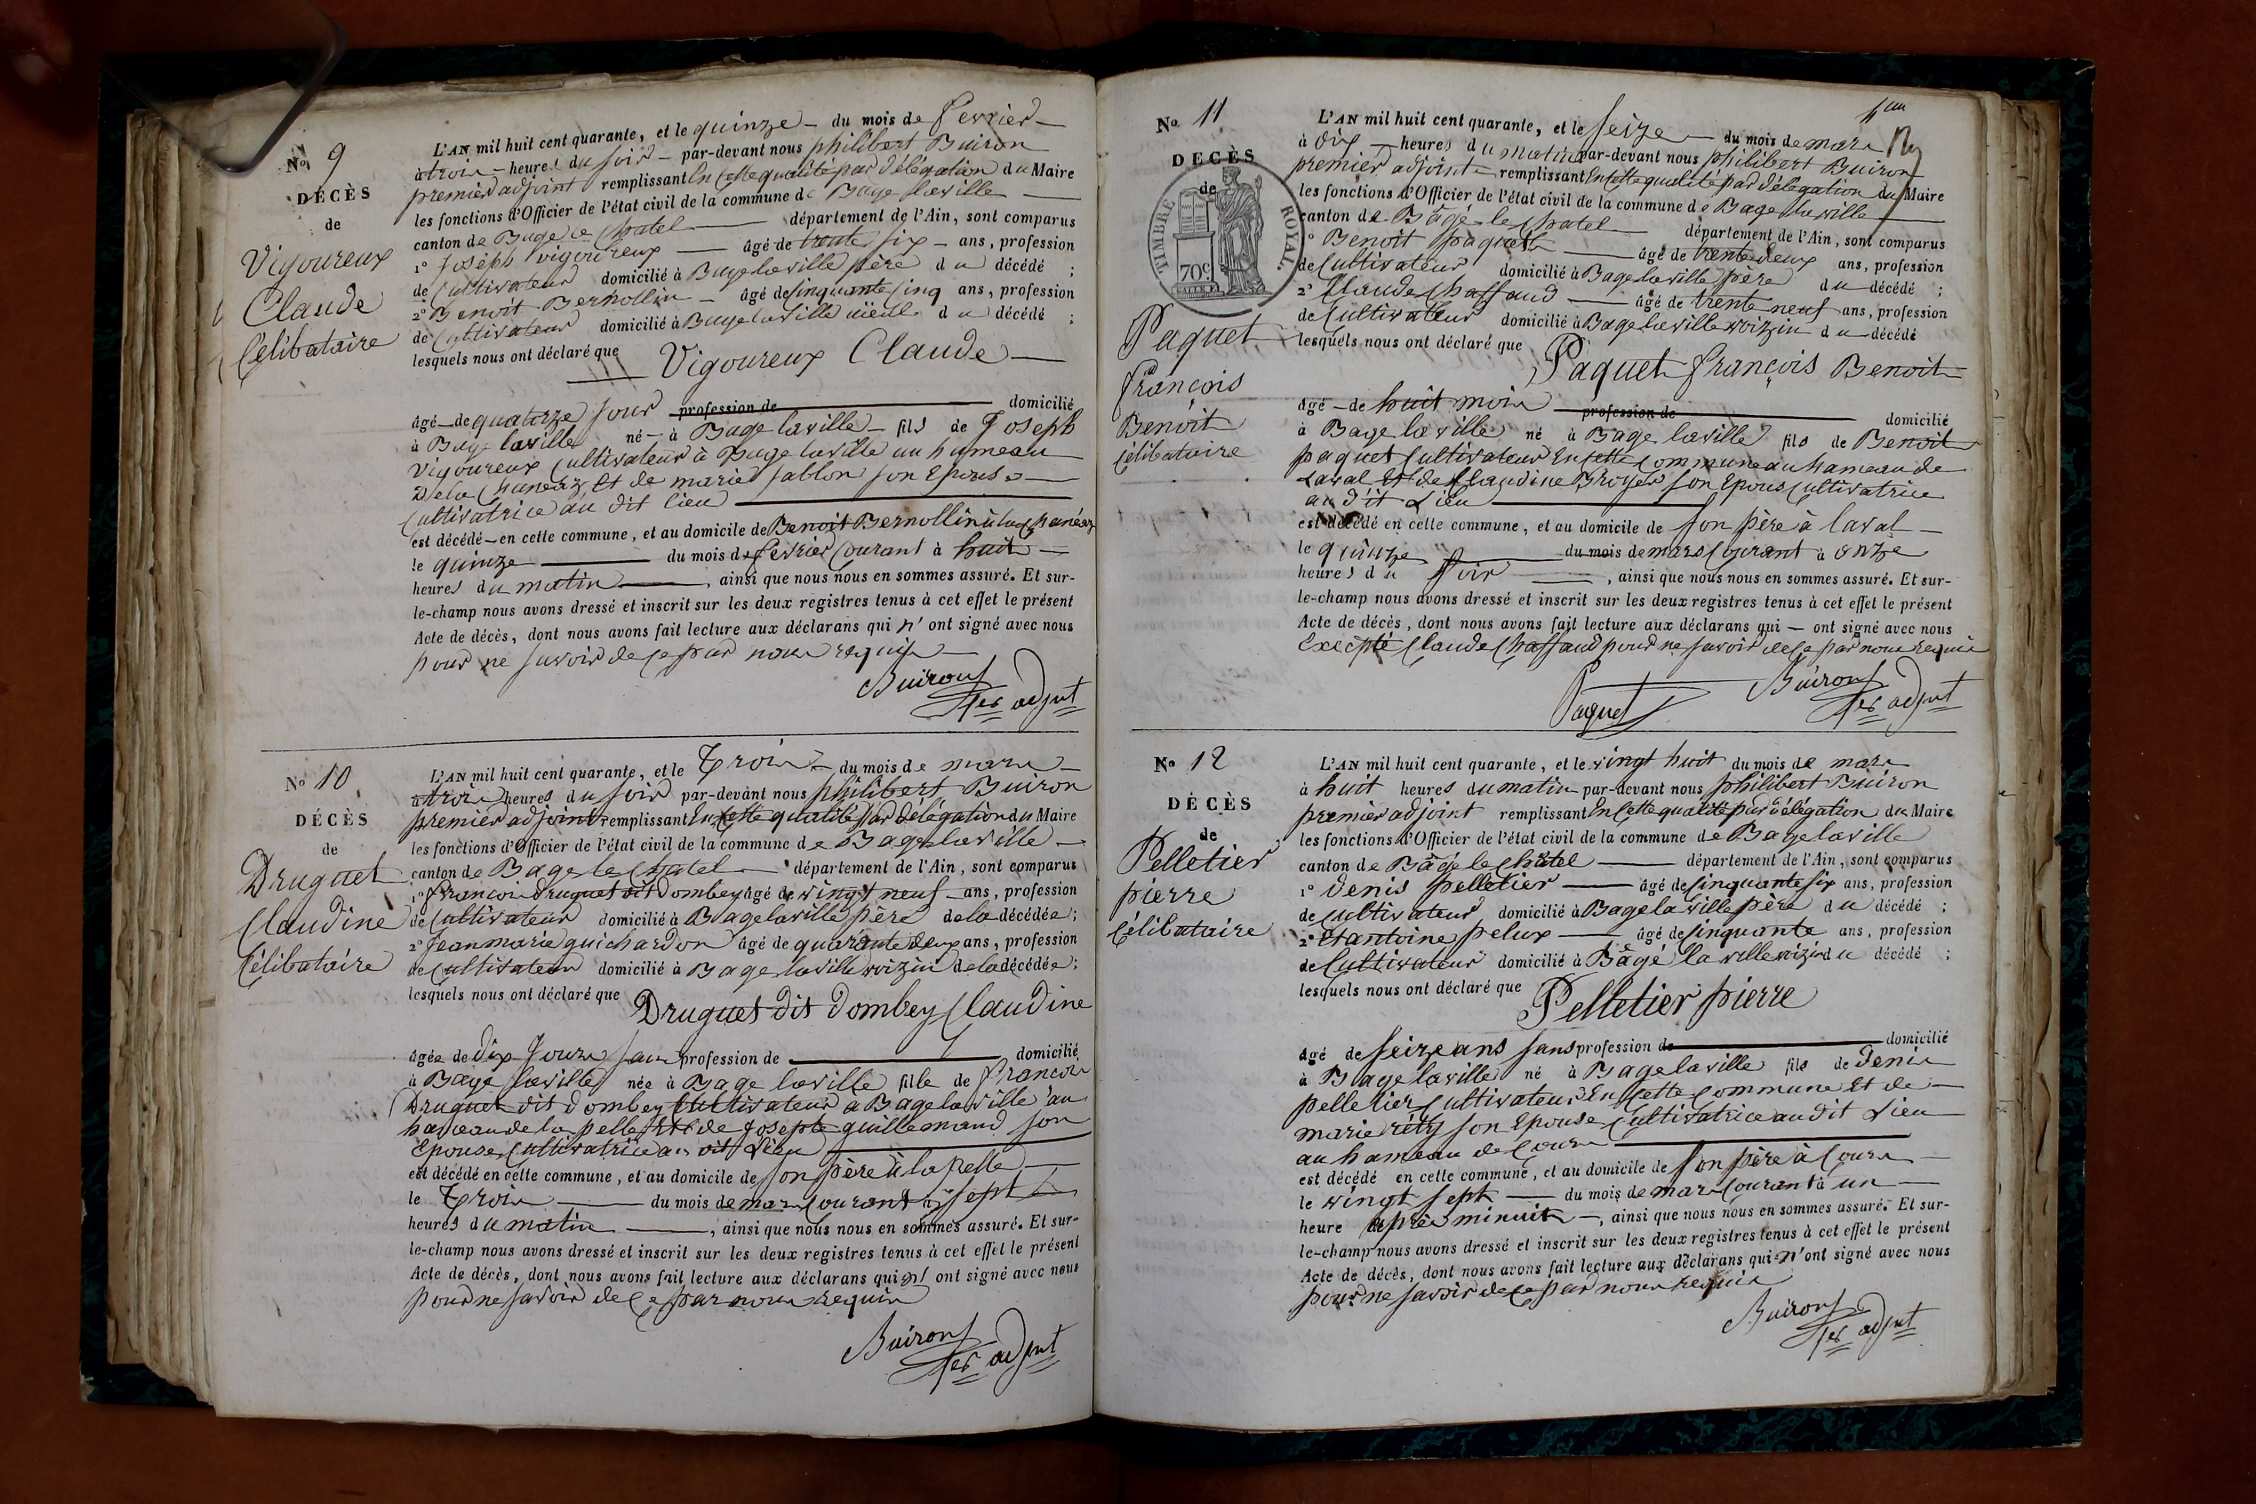 No 9
DÉCÈS
de
Vigoureux
Claude
Célibataire
L'AN mil huit cent quarante, et le quinze du mois de fevrier
à trois heures du soir par-devant nous philibert Buiron
premier adjoint remplissant En cette qualité par délégation du Maire
les fonctions d'Officier de l'état civil de la commune de Bage laville
canton de Bage le Chatel département de l'Ain, sont comparus
1° Joseph vigoureux âgé de trente six ans, profession
de Cultivateur domicilié à Bage laville père du décédé ;
2° Benoit Bernollin âgé de sinquante sinq ans, profession
de Cultivateur domicilié à Bage laville du décédé ;
lesquels nous ont déclaré que Vigoureux Claude
âgé de quatorze jour profession de domicilié
à Bage laville né à Bage laville fils de Joseph
Vigoureux Cultivateur à Bage laville au hameau
De la et de marie sablon son Epouse
Cultivatrice au dit lieu
est décédé en cette commune, et au domicile de Benoit Bernollin à la
le quinze du mois de fevrier Courant à huit
heures du matin, ainsi que nous nous en sommes assuré. Et sur-
le-champ nous avons dressé et inscrit sur les deux registres tenus à cet effet le présent
Acte de décès, dont nous avons fait lecture aux déclarans qui n'ont signé avec nous
pour ne savoir de ce par nous requis
Buiron
1er adjnt
No 10
DÉCÈS
de
Druguet
Claudine
Célibataire
L'AN mil huit cent quarante, et le Trois du mois de mars
à trois heures du soir par-devant nous philibert Buiron
premier adjoint remplissant En cette qualité par délégation du Maire
les fonctions d'Officier de l'état civil de la commune de Bage laville
canton de Bage le Chatel département de l'Ain, sont comparus
1° francois Druguet dit Dombey âgé de vingt neuf ans, profession
de Cultivateur domicilié à Bage laville père de la décédée ;
2° Jean marie guichardon âgé de quarante deux ans, profession
de Cultivateur domicilié à Bage laville voizin de la décédée ;
lesquels nous ont déclaré que Druguet dit Dombey Claudine
âgée de dix Jours sans profession de domicilié
à Bage laville née à Bage laville fille de francois
Druguet dit Dombey Cultivateur à Bage laville au
hameau de la pelle Et de Josepte guillemand son
Epouse Cultivatrice au dit Lieu
est décédé en cette commune, et au domicile de son père à la pelle
le Trois du mois de mars Courant à sept
heures du matin, ainsi que nous nous en sommes assuré. Et sur-
le-champ nous avons dressé et inscrit sur les deux registres tenus à cet effet le présent
Acte de décès, dont nous avons fait lecture aux déclarans qui n' ont signé avec nous
pour ne savoir de Ce par nous requis
Buiron
1er adjnt
No 11
DÉCÈS
de
TIMBRE ROYAL.
70c
Paquet
françois
Benoit
Célibataire
L'AN mil huit cent quarante, et le seize du mois de mars
à dix heures du matin par-devant nous philibert Buiron
premier adjoint remplissant En cette qualité par délégation du Maire
les fonctions d'Officier de l'état civil de la commune de Bage laville
canton de Bâgé le Chatel département de l'Ain, sont comparus
1° Benoit paquet âgé de trente deux ans, profession
de Cultivateur domicilié à Bage laville père du décédé ;
2° Claude Chaffaud âgé de trente neuf ans, profession
de Cultivateur domicilié à Bage laville voizin du décédé
lesquels nous ont déclaré que Paquet françois Benoit
âgé de huit mois profession de domicilié
à Bage laville né à Bage laville fils de Benoit
paquet Cultivateur En cette Commune au hameau de
Laval Et de Claudine Broyer son Epous Cultivatrice
au dit Lieu
est décédé en cette commune, et au domicile de son père à laval
le quinze du mois de mars Courant à onze
heures du soir, ainsi que nous nous en sommes assuré. Et sur-
le-champ nous avons dressé et inscrit sur les deux registres tenus à cet effet le présent
Acte de décès, dont nous avons fait lecture aux déclarans qui — ont signé avec nous
Excepté Claude Chaffaud pour ne savoir de Ce par nous requis
Paquet
Buiron
1er adjnt
No 12
DÉCÈS
de
Pelletier
pierre
Célibataire
L'AN mil huit cent quarante, et le vingt huit du mois de mars
à huit heures du matin par-devant nous philibert Buiron
premier adjoint remplissant En cette qualité par délégation du Maire
les fonctions d'Officier de l'état civil de la commune de Bage laville
canton de Bâgé le Châtel département de l'Ain, sont comparus
1° Denis pelletier âgé de sinquante six ans, profession
de Cultivateur domicilié à Bage la ville père du décédé ;
2° Et antoine pelux âgé de sinquante ans, profession
de Cultivateur domicilié à Bâgé la ville voizin du décédé ;
lesquels nous ont déclaré que Pelletier pierre
âgé de seize ans sans profession de domicilié
à Bage laville né à Bage laville fils de Denis
pelletier Cultivateur En cette Commune Et de
marie réty son Epouse Cultivatrice au dit Lieu
au hameau de Cours
est décédé en cette commune, et au domicile de son père à Cours
le vingt sept du mois de mars Courant à un
heure après minuit, ainsi que nous nous en sommes assuré. Et sur-
le-champ nous avons dressé et inscrit sur les deux registres tenus à cet effet le présent
Acte de décès, dont nous avons fait lecture aux déclarans qui n'ont signé avec nous
pour ne savoir de Ce par nous requis
Buiron
1er adjnt